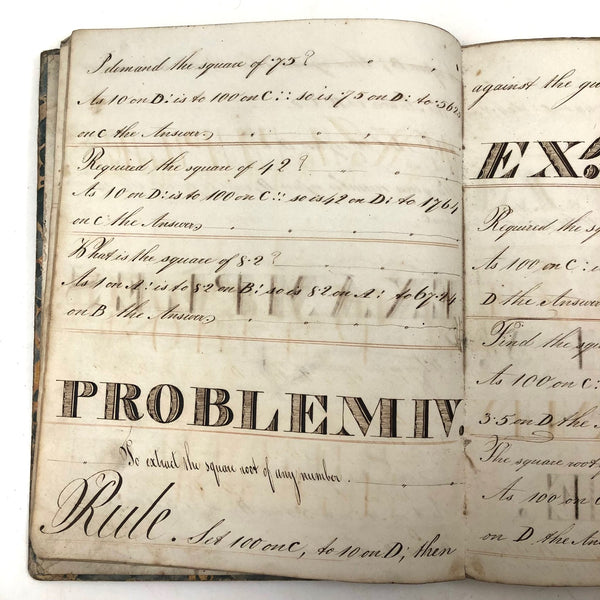 I demand the square of .75?
As 10 on D: is to 100 on C:: so is .75 on D: to .5625
on C the Answer,
Required the square of 42?
As 10 on D: is to 100 on C:: so is 42 on D: to 1764
on C the Answer,
What is the square of 8.2?
As 1 on A: is to 82 on B: so is 82 on A: to 67.24
on B the Answer,
PROBLEM IV.
To extract the square root of any number.
Rule. Set 100 on C, to 10 on D; then
against the
EX.
Required the
As 100 on C: i
D the Answer
Find the squ
As 100 on C
3.5 on D the A
The square root
As 100 on C
on D the Ans